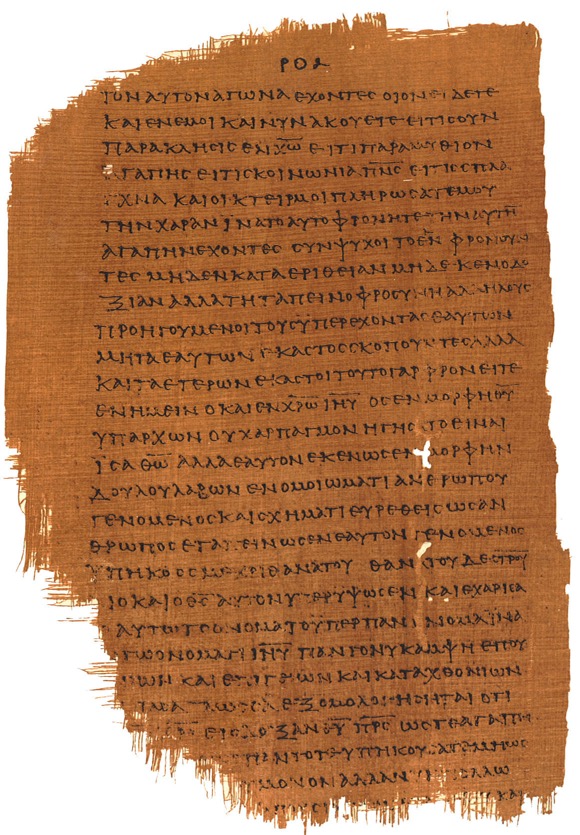 ΡΟΑ
ΤΟΝ ΑΥΤΟΝ ΑΓΩΝΑ ΕΧΟΝΤΕΣ ΟΙΟΝ ΕΙΔΕΤΕ
ΚΑΙ ΕΝ ΕΜΟΙ ΚΑΙ ΝΥΝ ΑΚΟΥΕΤΕ ΕΙ ΤΙΣ ΟΥΝ
ΠΑΡΑΚΛΗΣΙΣ ΕΝ Χ̅Ω̅ ΕΙ ΤΙ ΠΑΡΑΜΥΘΙΟΝ
ΑΓΑΠΗΣ ΕΙ ΤΙΣ ΚΟΙΝΩΝΙΑ Π̅Ν̅Σ̅ ΕΙ ΤΙΣ ΣΠΛΑ
ΓΧΝΑ ΚΑΙ ΟΙΚΤΕΙΡΜΟΙ ΠΛΗΡΩΣΑΤΕ ΜΟΥ
ΤΗΝ ΧΑΡΑΝ ΙΝΑ ΤΟ ΑΥΤΟ ΦΡΟΝΗΤΕ ΤΗΝ ΑΥΤΗ̅
ΑΓΑΠΗΝ ΕΧΟΝΤΕΣ ΣΥΝΨΥΧΟΙ ΤΟ ΕΝ ΦΡΟΝΟΥΝ
ΤΕΣ ΜΗΔΕΝ ΚΑΤΑ ΕΡΙΘΕΙΑΝ ΜΗΔΕ ΚΕΝΟΔΟ
ΞΙΑΝ ΑΛΛΑ ΤΗ ΤΑΠΕΙΝΟΦΡΟΣΥΝΗ ΑΛΛΗΛΟΥΣ
ΠΡΟΗΓΟΥΜΕΝΟΙ ΤΟΥΣ ΥΠΕΡΕΧΟΝΤΑΣ ΕΑΥΤΩΝ
ΜΗ ΤΑ ΕΑΥΤΩΝ ΕΚΑΣΤΟΣ ΣΚΟΠΟΥΝΤΕΣ ΑΛΛΑ
ΚΑΙ ΤΑ ΕΤΕΡΩΝ ΕΚΑΣΤΟΙ ΤΟΥΤΟ ΓΑΡ ΦΡΟΝΕΙΤΕ
ΕΝ ΗΜΕΙΝ Ο ΚΑΙ ΕΝ Χ̅Ρ̅Ω̅ Ι̅Η̅Υ̅ ΟΣ ΕΝ ΜΟΡΦΗ Θ̅Υ̅
ΥΠΑΡΧΩΝ ΟΥΧ ΑΡΠΑΓΜΟΝ ΗΓΗΣΑΤΟ ΤΟ ΕΙΝΑΙ
ΙΣΑ Θ̅Ω̅ ΑΛΛΑ ΕΑΥΤΟΝ ΕΚΕΝΩΣΕΝ ΜΟΡΦΗΝ
ΔΟΥΛΟΥ ΛΑΒΩΝ ΕΝ ΟΜΟΙΩΜΑΤΙ ΑΝΘΡΩΠΟΥ
ΓΕΝΟΜΕΝΟΣ ΚΑΙ ΣΧΗΜΑΤΙ ΕΥΡΕΘΕΙΣ ΩΣ ΑΝ
ΘΡΩΠΟΣ ΕΤΑΠΕΙΝΩΣΕΝ ΕΑΥΤΟΝ ΓΕΝΟΜΕΝΟΣ
ΥΠΗΚΟΟΣ ΜΕΧΡΙ ΘΑΝΑΤΟΥ ΘΑΝΑΤΟΥ ΔΕ Σ̅Τ̅Ρ̅Ο̅Υ̅
ΔΙΟ ΚΑΙ Ο Θ̅Σ̅ ΑΥΤΟΝ ΥΠΕΡΥΨΩΣΕΝ ΚΑΙ ΕΧΑΡΙΣΑ
ΑΥΤΩ ΤΟ ΟΝΟΜΑ ΤΟ ΥΠΕΡ ΠΑΝ ΟΝΟΜΑ ΙΝΑ
ΤΩ ΟΝΟΜΑΤΙ Ι̅Η̅Υ̅ ΠΑΝ ΓΟΝΥ ΚΑΜΨΗ ΕΠΟΥ
ΝΙΩΝ ΚΑΙ ΕΠΙΓΕΙΩΝ ΚΑΙ ΚΑΤΑΧΘΟΝΙΩΝ
ΓΛΩΣΣΑ ΕΞΟΜΟΛΟΓΗΣΗΤΑΙ ΟΤΙ
ΕΙΣ ΔΟΞΑΝ Θ̅Υ̅ Π̅Ρ̅Σ̅ ΩΣΤΕ ΑΓΑΠΗ
ΠΑΝΤΟΤΕ ΥΠΗΚΟΥΣΑΤΕ ΜΗ ΩΣ
ΜΟΝΟΝ ΑΛΛΑ ΝΥΝ ΠΟΛΛΩ
ΚΑΙ